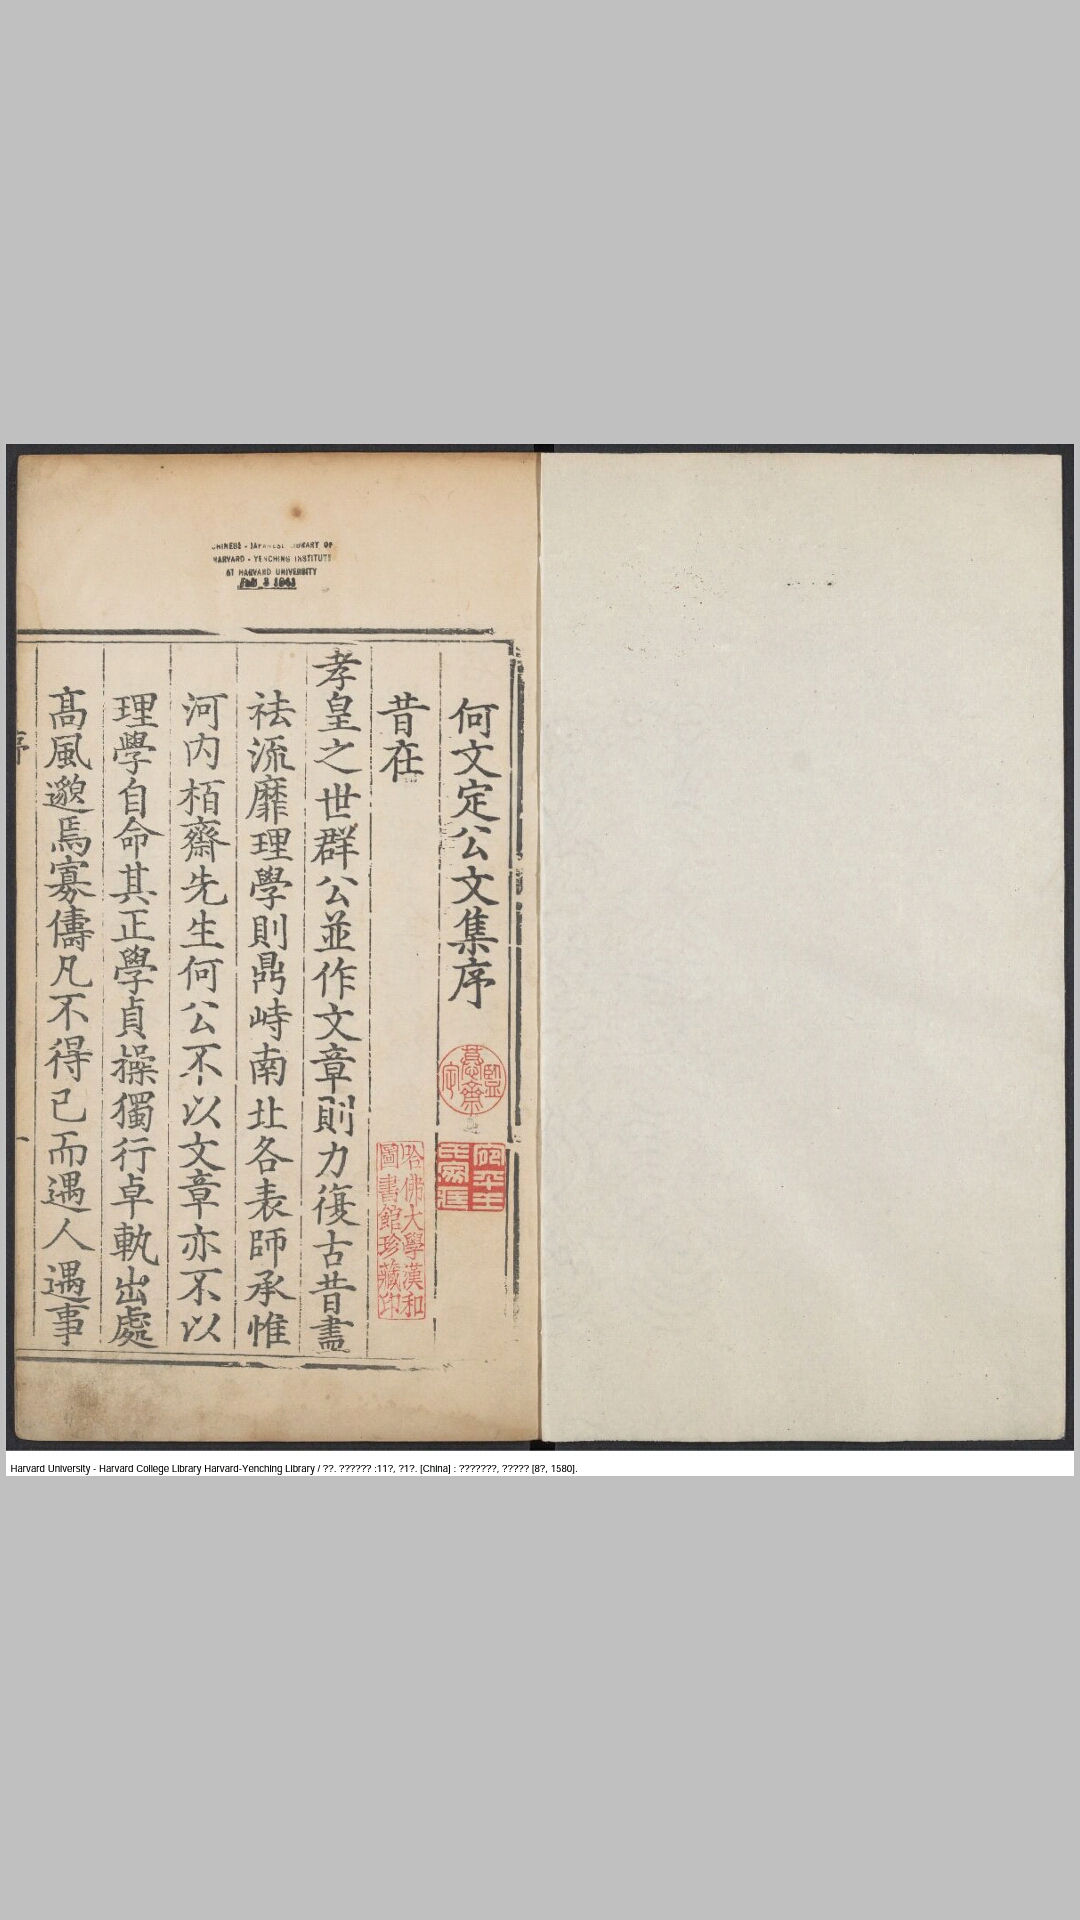 何文定公文集序
昔在
孝皇之世群公並作文章則力復古昔盡
祛流靡理學則鼎峙南北各表師承惟
河内栢齋先生何公不以文章亦不以
理學自命其正學貞操獨行卓軌出處
高風邈焉寡儔凡不得已而遇人遇事
序
一
哈佛大學漢和
圖書館珍藏印
CHINESE - JAPANESE LIBRARY OF
HARVARD - YENCHING INSTITUTE
AT HARVARD UNIVERSITY
FEB 3 1941
Harvard University - Harvard College Library Harvard-Yenching Library / ??. ?????? :11?, ?1?. [China] : ???????, ????? [8?, 1580].